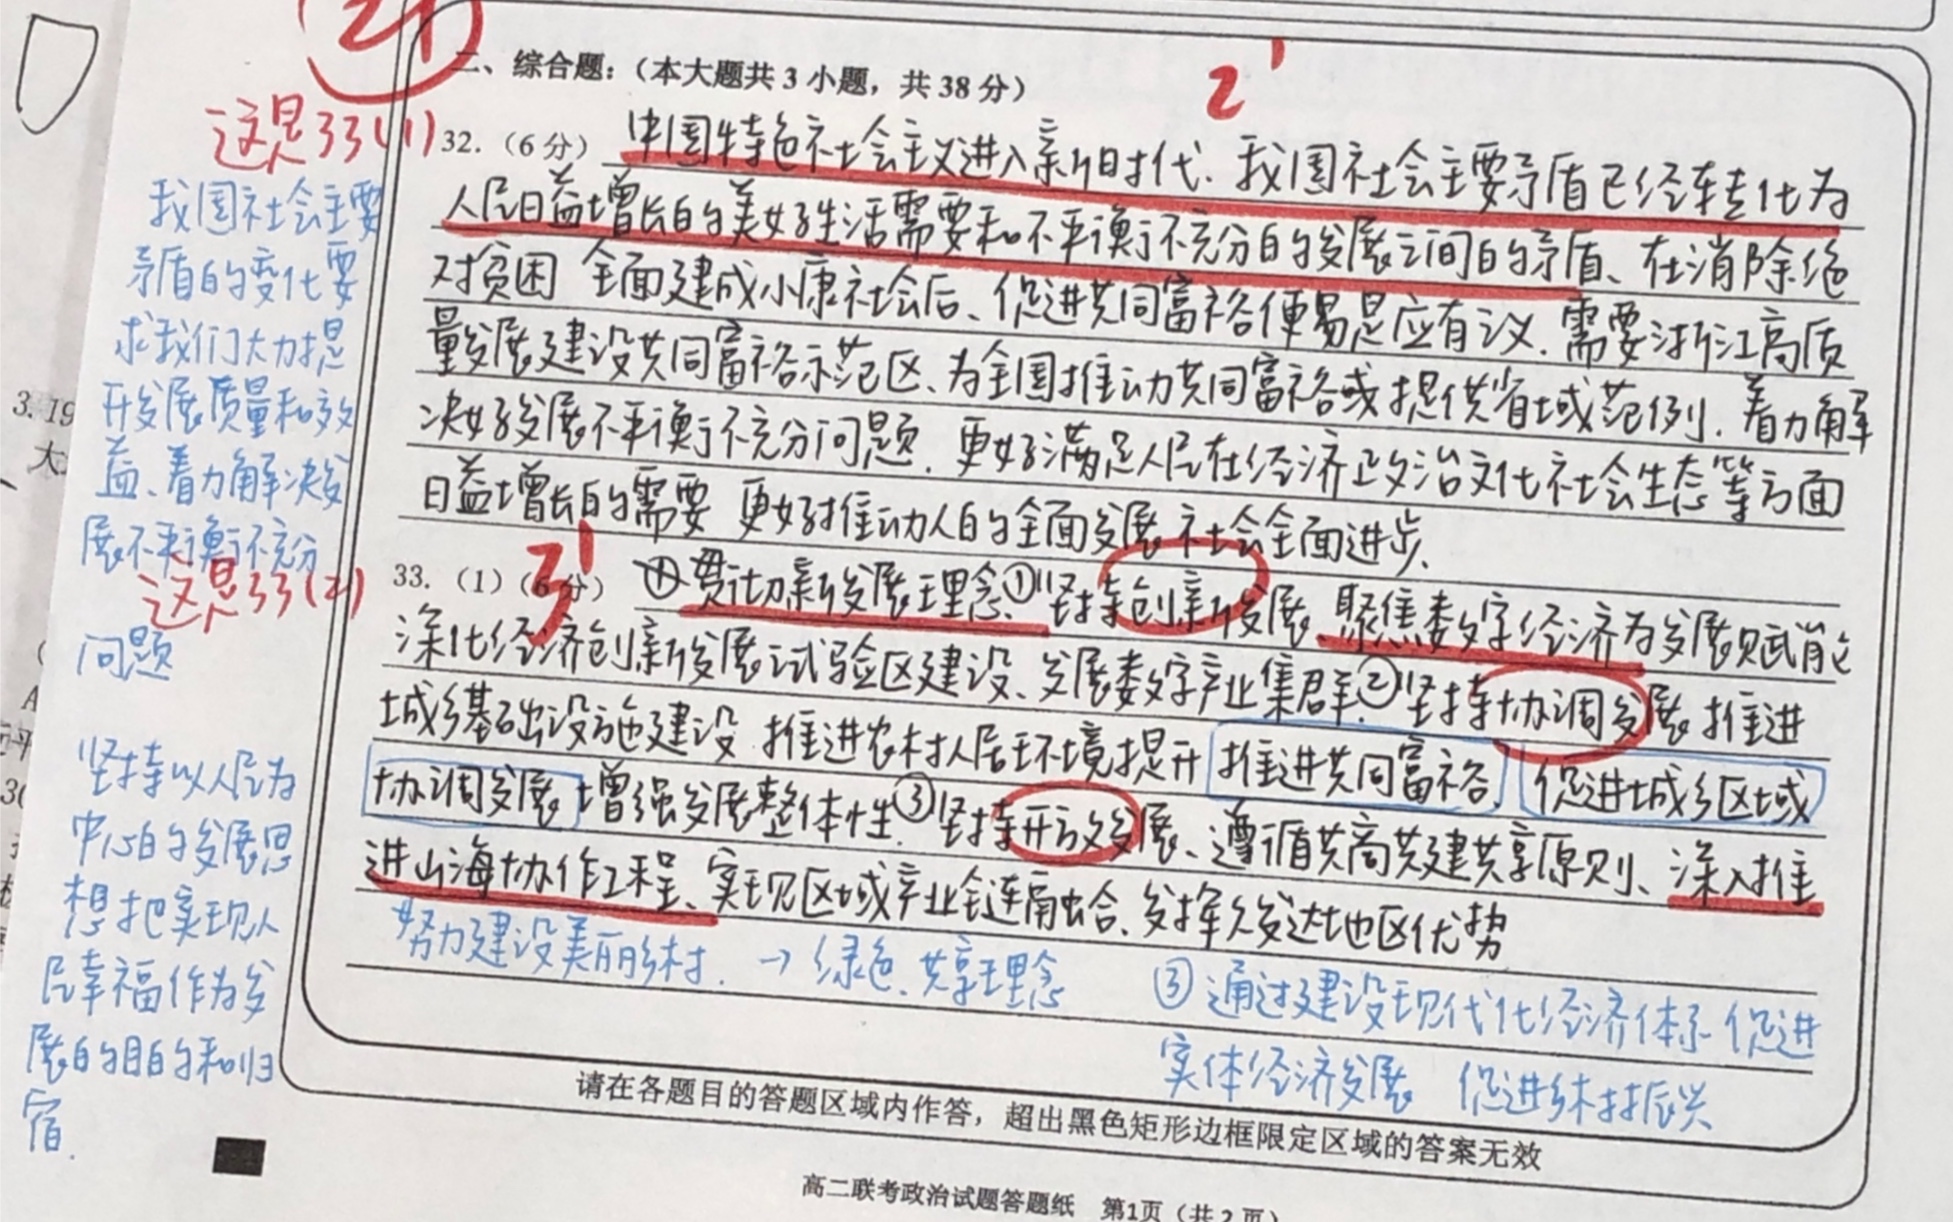 21
二、综合题：（本大题共 3 小题，共 38 分）
2'
这是33(1)
32.（6 分）中国特色社会主义进入新时代、我国社会主要矛盾已经转化为
人民日益增长的美好生活需要和不平衡不充分的发展之间的矛盾、在消除绝
对贫困 全面建成小康社会后、促进共同富裕便易是应有议．需要浙江高质
量发展建设共同富裕示范区、为全国推动共同富裕或提供省域范例．着力解
决好发展不平衡不充分问题．更好满足人民在经济政治文化社会生态等方面
日益增长的需要 更好推动人的全面发展 社会全面进步．
3'
33.（1）（6 分）④贯切新发展理念．①坚持创新发展 聚焦数字经济为发展赋能
深化经济创新发展试验区建设、发展数字产业集群．②坚持协调发展 推进
城乡基础设施建设 推进农村人居环境提升 推进共同富裕．促进城乡区域
协调发展 增强发展整体性．③坚持开放发展、遵循共商共建共享原则、深入推
进山海协作工程、实现区域产业全链融合．发挥欠发达地区优势
努力建设美丽乡村．→绿色、共享理念
③通过建设现代化经济体系 促进
实体经济发展 促进乡村振兴
我国社会主要
矛盾的变化要
求我们大力提
升发展质量和效
益、着力解决发
展不平衡不充分
这是33(2)
问题
坚持以人民为
中心的发展思
想 把实现人
民幸福作为发
展的目的和归
宿．
3. 19
大
(
A
请在各题目的答题区域内作答，超出黑色矩形边框限定区域的答案无效
高二联考政治试题答题纸 第1页（共 2 页）